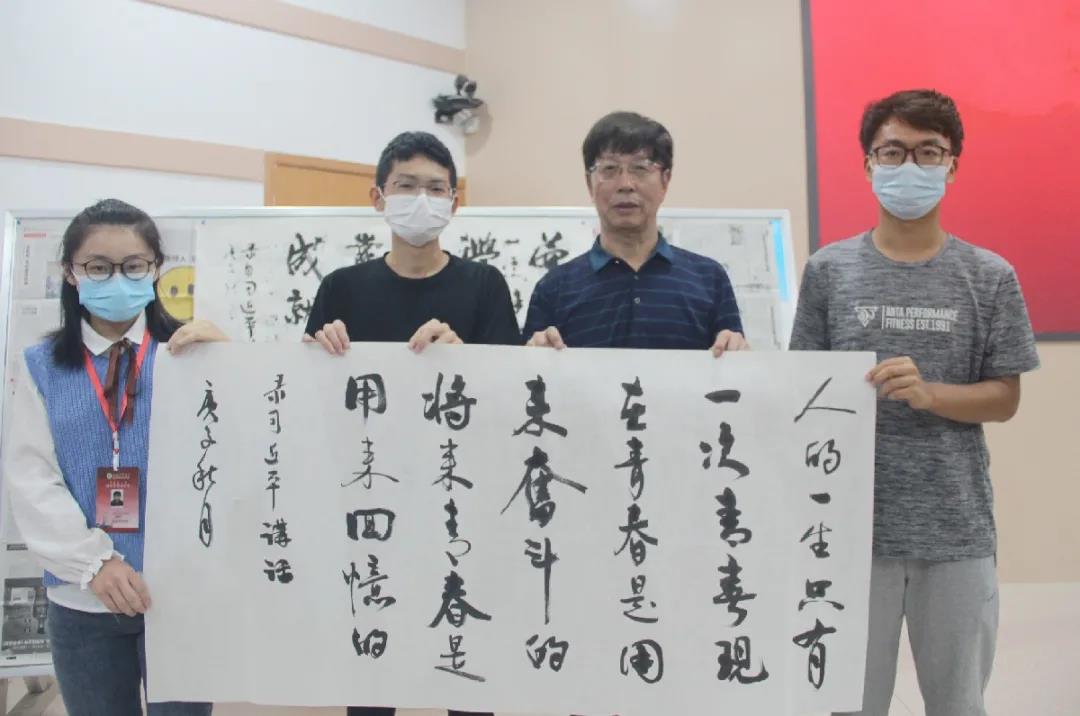 人的一生只有
一次青春現
在青春是用
来奮斗的
将来青春是
用来回憶的
录习近平講话
庚子秋月
成就
ANTA PERFORMANCE
FITNESS EST.1991